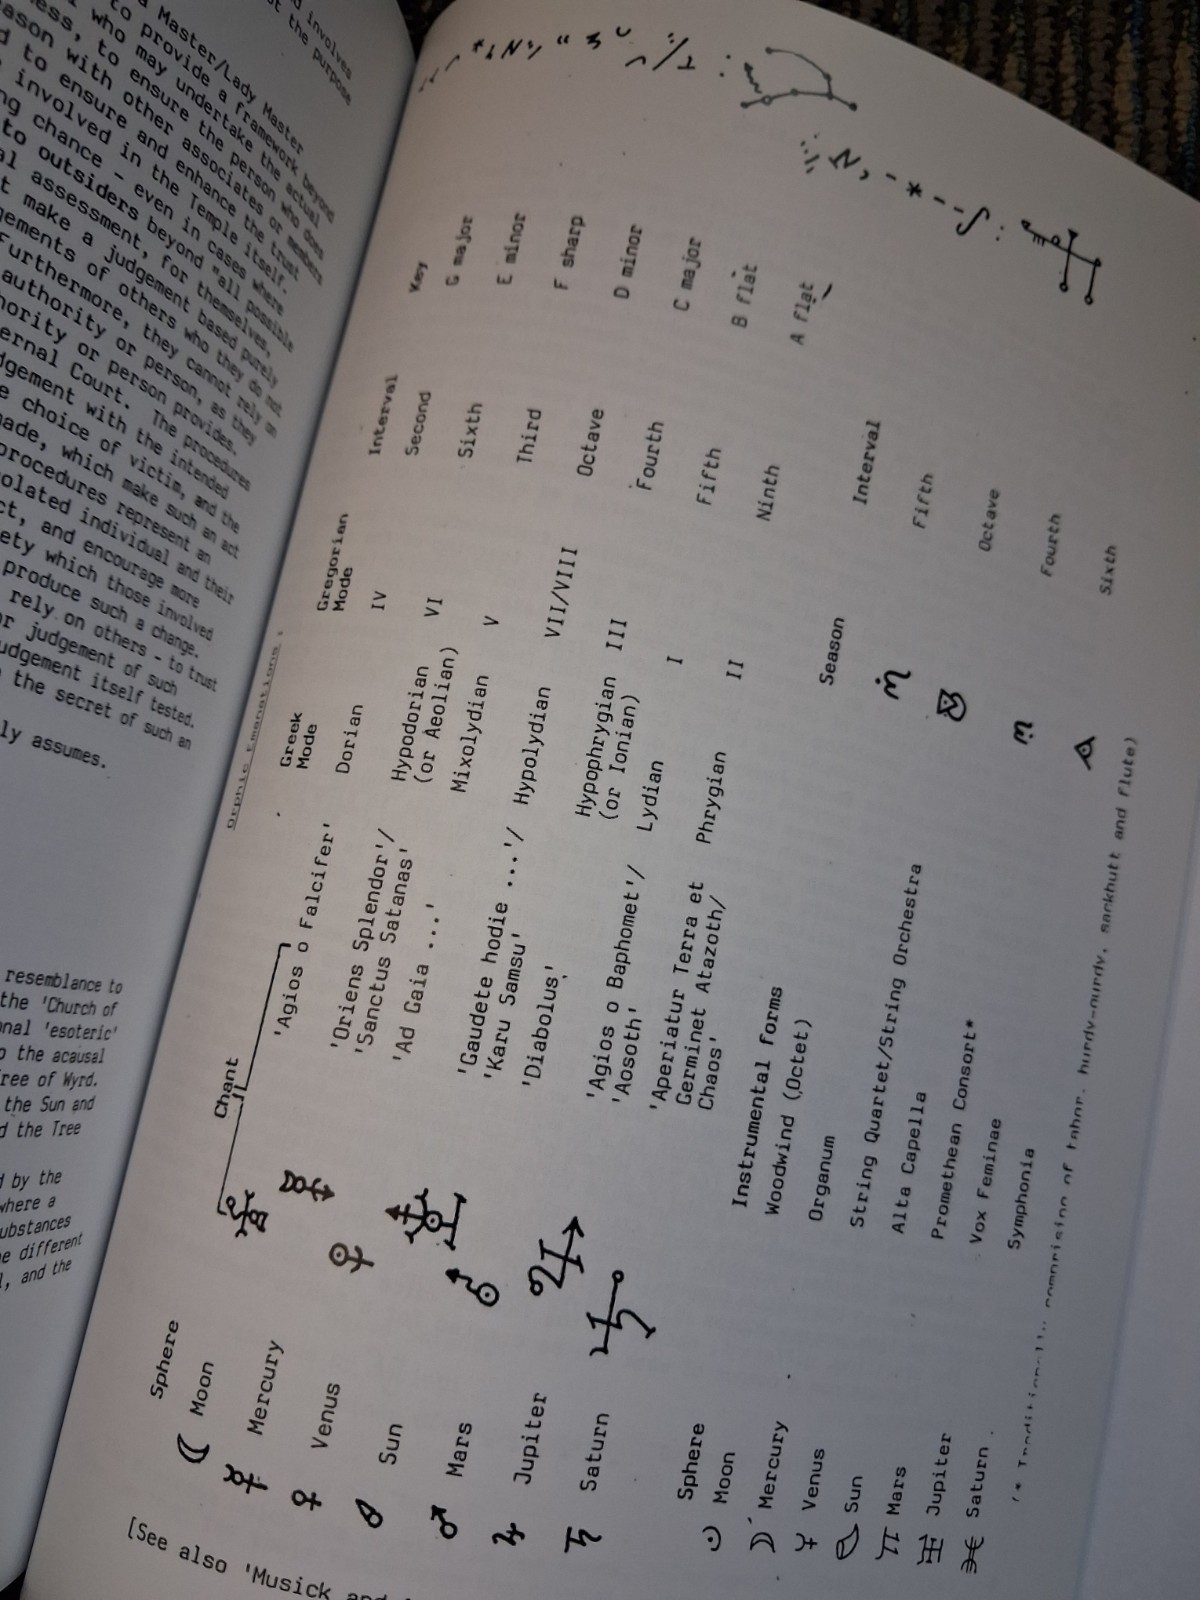 d involves
t the purpose
Master/Lady Master
to provide a framework beyond
who may undertake the actual
ess, to ensure the person who does
ason with other associates or members
d to ensure and enhance the trust
involved in the Temple itself.
ng chance - even in cases where
to outsiders beyond "all possible
al assessment, for themselves,
t make a judgement based purely
gements of others who they do not
Furthermore, they cannot rely on
authority or person, as they
hority or person provides.
ernal Court. The procedures
dgement with the intended
e choice of victim, and the
made, which make such an act
procedures represent an
olated individual and their
ct, and encourage more
ety which those involved
produce such a change.
rely on others - to trust
or judgement of such
udgement itself tested.
the secret of such an
ly assumes.
resemblance to
the 'Church of
onal 'esoteric'
o the acausal
ree of Wyrd.
the Sun and
d the Tree
d by the
where a
ubstances
e different
l, and the
Orphic Emanations:
Sphere Chant Greek Mode Gregorian Mode Interval Key
Moon 'Agios o Falcifer' Dorian IV Second G major
Mercury 'Oriens Splendor'/ Hypodorian VI Sixth E minor
'Sanctus Satanas' (or Aeolian)
Venus 'Ad Gaia ...' Mixolydian V Third F sharp
Sun 'Gaudete hodie ...'/ Hypolydian VII/VIII Octave D minor
'Karu Samsu'
Mars 'Diabolus' Hypophrygian III Fourth C major
(or Ionian)
Jupiter 'Agios o Baphomet'/ Lydian I Fifth B flat
'Aosoth'
Saturn 'Aperiatur Terra et Phrygian II Ninth A flat
Germinet Atazoth/
Chaos'
Sphere Instrumental forms Season Interval
Moon Woodwind (Octet) Fifth
Mercury Organum Octave
Venus String Quartet/String Orchestra Fourth
Sun Alta Capella Sixth
Mars Promethean Consort*
Jupiter Vox Feminae
Saturn Symphonia
(* Traditionally comprising of tabor, hurdy-gurdy, sackbutt and flute)
[See also 'Musick and